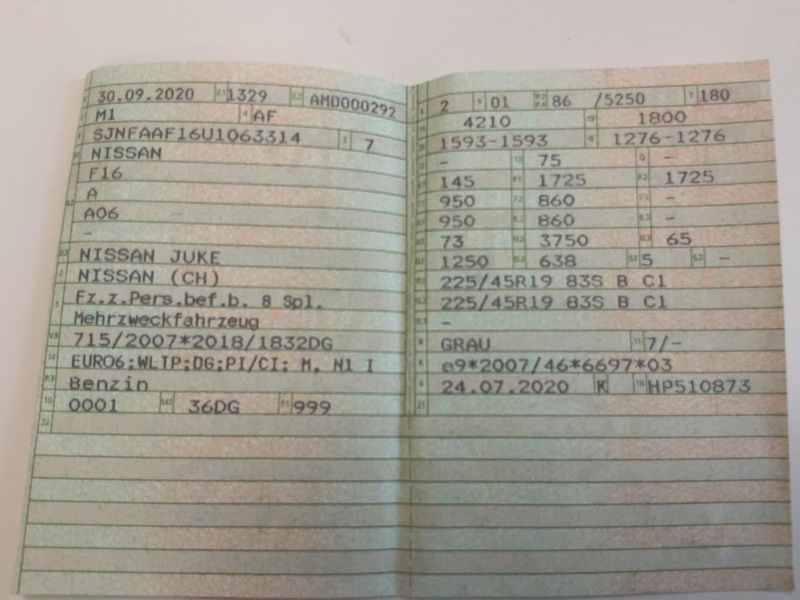 30.09.2020 1329 AMD000292
M1 AF
SJNFAAF16U1063314 7
NISSAN
F16
A
A06
-
NISSAN JUKE
NISSAN (CH)
Fz.z.Pers.bef.b. 8 Spl.
Mehrzweckfahrzeug
715/2007*2018/1832DG
EURO6;WLTP;DG;PI/CI; M, N1 I
Benzin
0001 36DG 999
22
2 01 86 /5250 180
4210 1800
1593-1593 1276-1276
- 75 -
145 1725 1725
950 860 -
950 860 -
73 3750 65
1250 638 5 -
225/45R19 83S B C1
225/45R19 83S B C1
-
GRAU 7/-
e9*2007/46*6697*03
24.07.2020 K HP510873
21